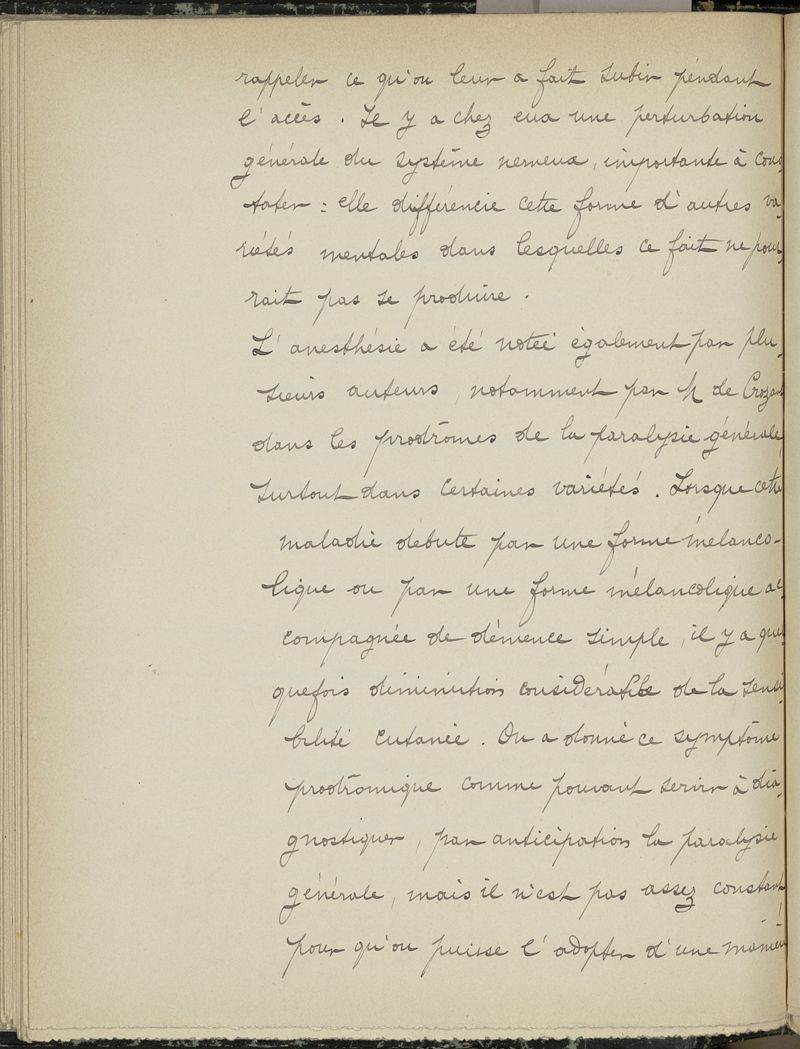 rappeler ce qu'on leur a fait subir pendant
l'accès. Il y a chez eux une perturbation
générale du système nerveux, importante à cons
tater : elle différencie cette forme d'autres va-
riétés mentales dans lesquelles ce fait ne pour
rait pas se produire.
L'anesthésie a été notée également par plu-
sieurs auteurs, notamment par M de Crozant
dans les prodrômes de la paralysie générale
surtout dans certaines variétés. Lorsque cette
maladie débute par une forme mélanco-
lique ou par une forme mélancolique ac
compagnée de démence simple, il y a quel
quefois diminution considérable de la sensi
bilité cutanée. On a donné ce symptôme
prodromique comme pouvant servir à dia-
gnostiquer, par anticipation la paralysie
générale, mais il n'est pas assez constant
pour qu'on puisse l'adopter d'une manière